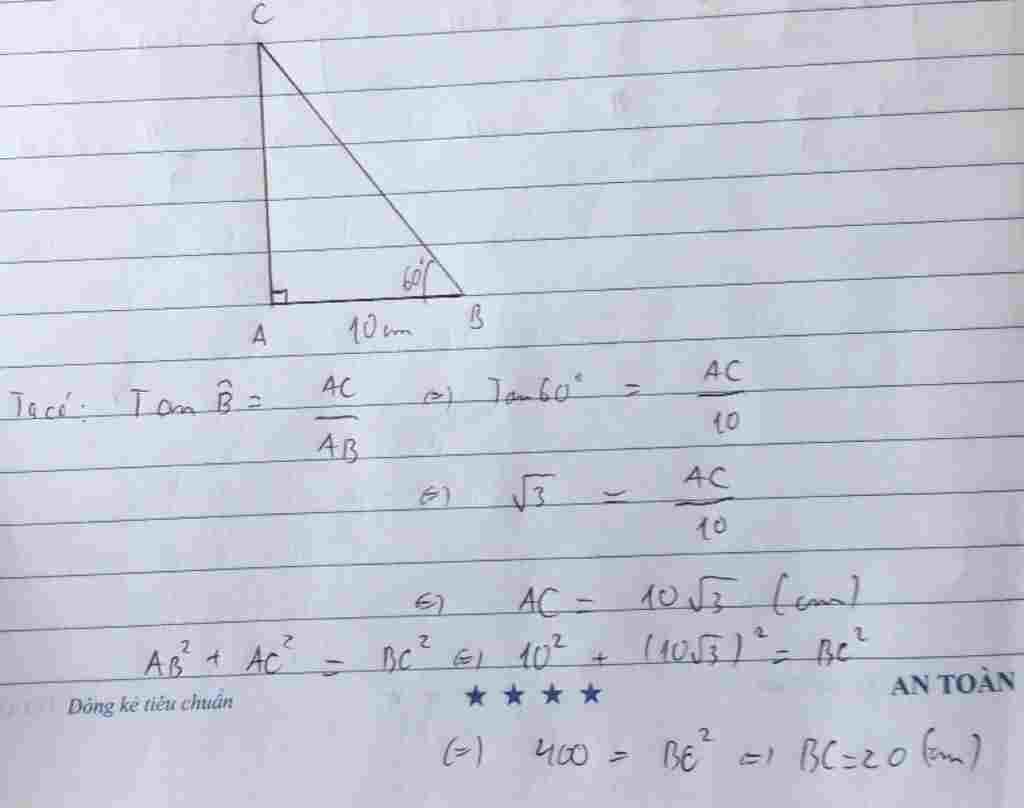 C
60°
A 10cm B
Ta có: Tan B̂ = AC/AB (=) Tan60° = AC/10
(=) √3 = AC/10
(=) AC = 10√3 (cm)
AB² + AC² = BC² (=) 10² + (10√3)² = BC²
Dòng kẻ tiêu chuẩn ★ ★ ★ ★ AN TOÀN
(=) 400 = BC² =) BC = 20 (cm)